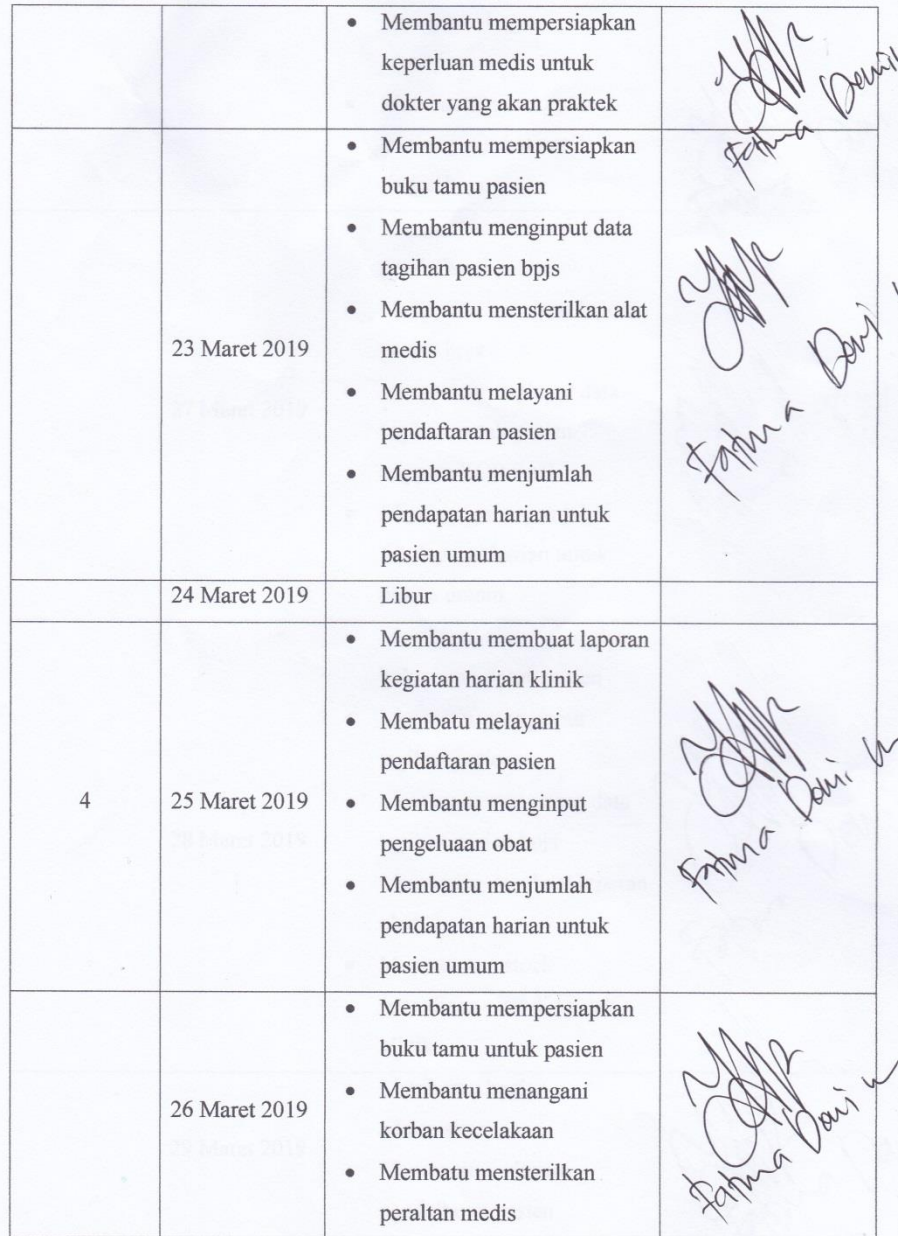 • Membantu mempersiapkan
keperluan medis untuk
dokter yang akan praktek
Fatima
• Membantu mempersiapkan
buku tamu pasien
• Membantu menginput data
tagihan pasien bpjs
• Membantu mensterilkan alat
medis
23 Maret 2019
• Membantu melayani
pendaftaran pasien
• Membantu menjumlah
pendapatan harian untuk
pasien umum
Fatima
24 Maret 2019 Libur
• Membantu membuat laporan
kegiatan harian klinik
• Membatu melayani
pendaftaran pasien
4 25 Maret 2019
• Membantu menginput
pengeluaan obat
• Membantu menjumlah
pendapatan harian untuk
pasien umum
Fatima
• Membantu mempersiapkan
buku tamu untuk pasien
26 Maret 2019
• Membantu menangani
korban kecelakaan
• Membatu mensterilkan
peraltan medis
Fatima